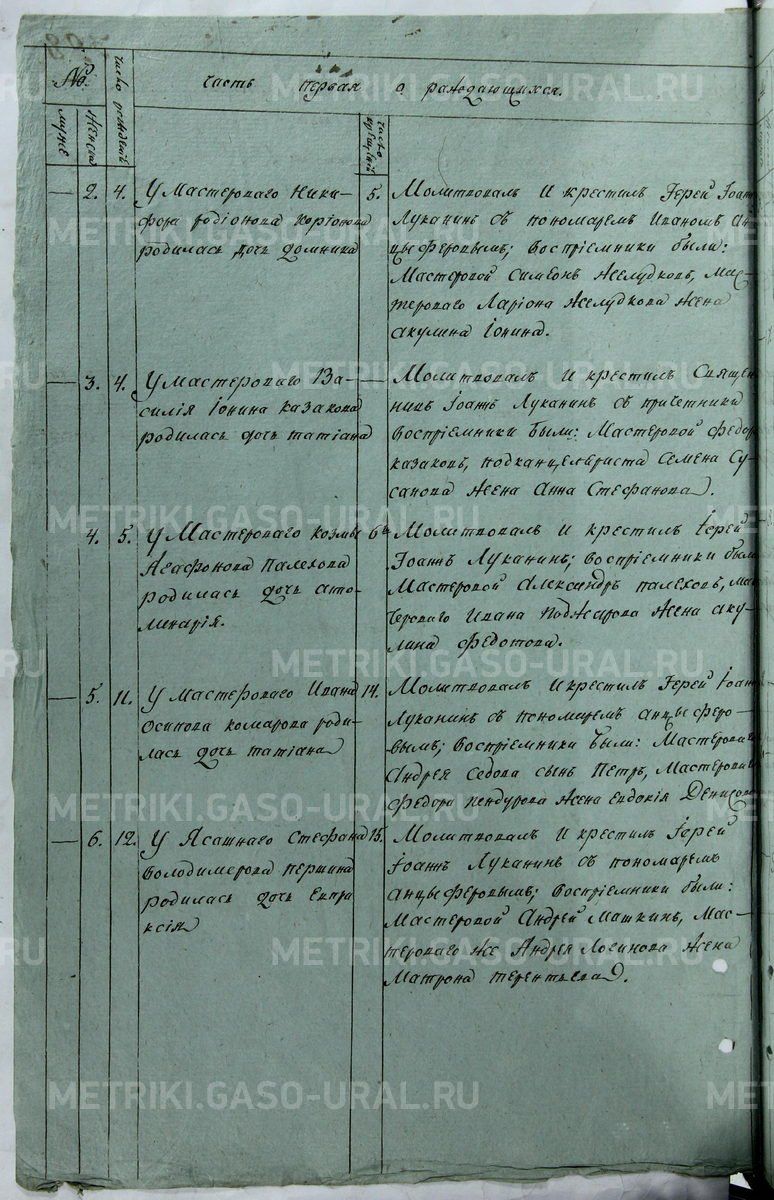 №
Часть первая о раждающихся.
число рожденi
муже
женска
число крещенi
— 2. 4. У Мастероваго Ники-
фора Родiонова Корiонова
родилась дочь Домника
5. Молитвовалъ и крестилъ Iерей Iоаннъ
Луканинъ съ пономаремъ Иваномъ Ан-
цыферовымъ; воспрiемники были:
Мастеровой Симеонъ Желудковъ, Мас-
тероваго Ларiона Желудкова жена
Акулина Iонина.
— 3. 4. У Мастероваго Ва-
силiя Iонина Казакова
родилась дочь Татiана
— Молитвовалъ и крестилъ Священ
никъ Iоаннъ Луканинъ съ причетники
воспрiемники были: Мастеровой Федоръ
Казаковъ, подканцеляриста Семена Су-
санова жена Анна Стефанова.
4. 5. У Мастероваго Козмы
Агафонова Палехова
родилась дочь Апо-
линарiя.
6. Молитвовалъ и крестилъ Iерей
Iоаннъ Луканинъ; воспрiемники были
Мастеровой Александръ Палеховъ, Мас
тероваго Ивана Поджарова жена Аку-
лина Федотова.
— 5. 11. У Мастероваго Ивана
Осипова Комарова роди-
лась дочь Татiана
14. Молитвовалъ и крестилъ Iерей Iоаннъ
Луканинъ съ пономаремъ Анцыферо-
вымъ; воспрiемники были: Мастероваго
Андрея Седова сынъ Петръ, Мастероваго
Федора жена Евдокiя Денисова
— 6. 12. У Ясашнаго Стефана
Володимерова Першина
родилась дочь Евпра
ксiя
15. Молитвовалъ и крестилъ Iерей
Iоаннъ Луканинъ съ пономаремъ
Анцыферовымъ; воспрiемники были:
Мастеровой Андрей Машкинъ, Мас-
тероваго же Андрея Логинова жена
Матрона Терентьева.
METRIKI.GASO-URAL.RU